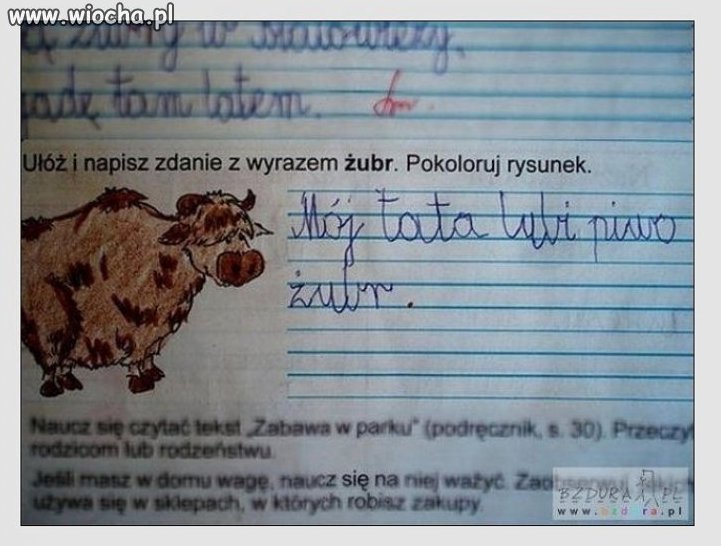 www.wiocha.pl
żubry w Białowieży,
jadę tam latem.
Ułóż i napisz zdanie z wyrazem żubr. Pokoloruj rysunek.
Mój tata lubi piwo
żubr.
Naucz się czytać tekst „Zabawa w parku" (podręcznik, s. 30). Przeczyt
rodzicom lub rodzeństwu.
Jeśli masz w domu wagę, naucz się na niej ważyć.
używa się w sklepach, w których robisz zakupy.
BZDURA.PL
www.bzdura.pl